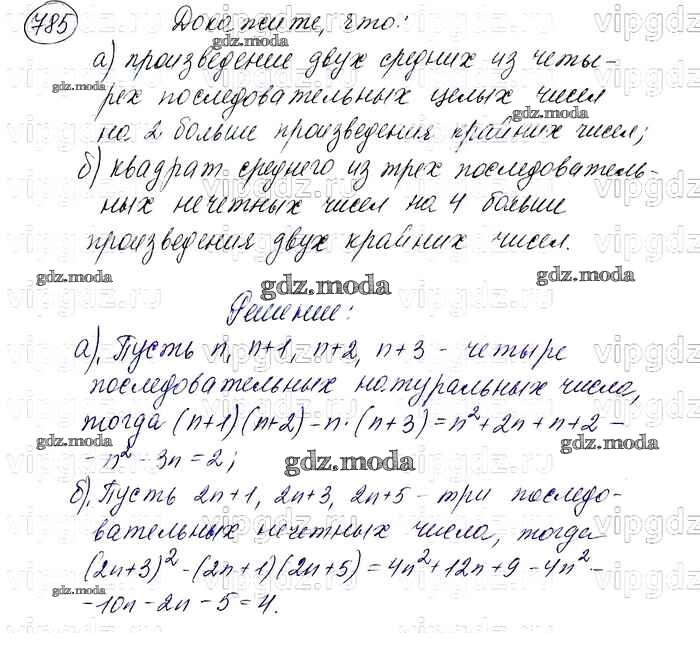 785 Докажите, что:
а) произведение двух средних из четы-
рех последовательных целых чисел
на 2 больше произведения крайних чисел;
б) квадрат среднего из трех последователь-
ных нечетных чисел на 4 больше
произведения двух крайних чисел.
Решение:
а). Пусть n, n+1, n+2, n+3 - четыре
последовательных натуральных числа,
тогда (n+1)(n+2) - n·(n+3) = n²+2n+n+2 -
- n² - 3n = 2;
б). Пусть 2n+1, 2n+3, 2n+5 - три последо-
вательных нечетных числа, тогда
(2n+3)² - (2n+1)(2n+5) = 4n²+12n+9 - 4n² -
- 10n - 2n - 5 = 4.
gdz.moda
vipgdz.ru